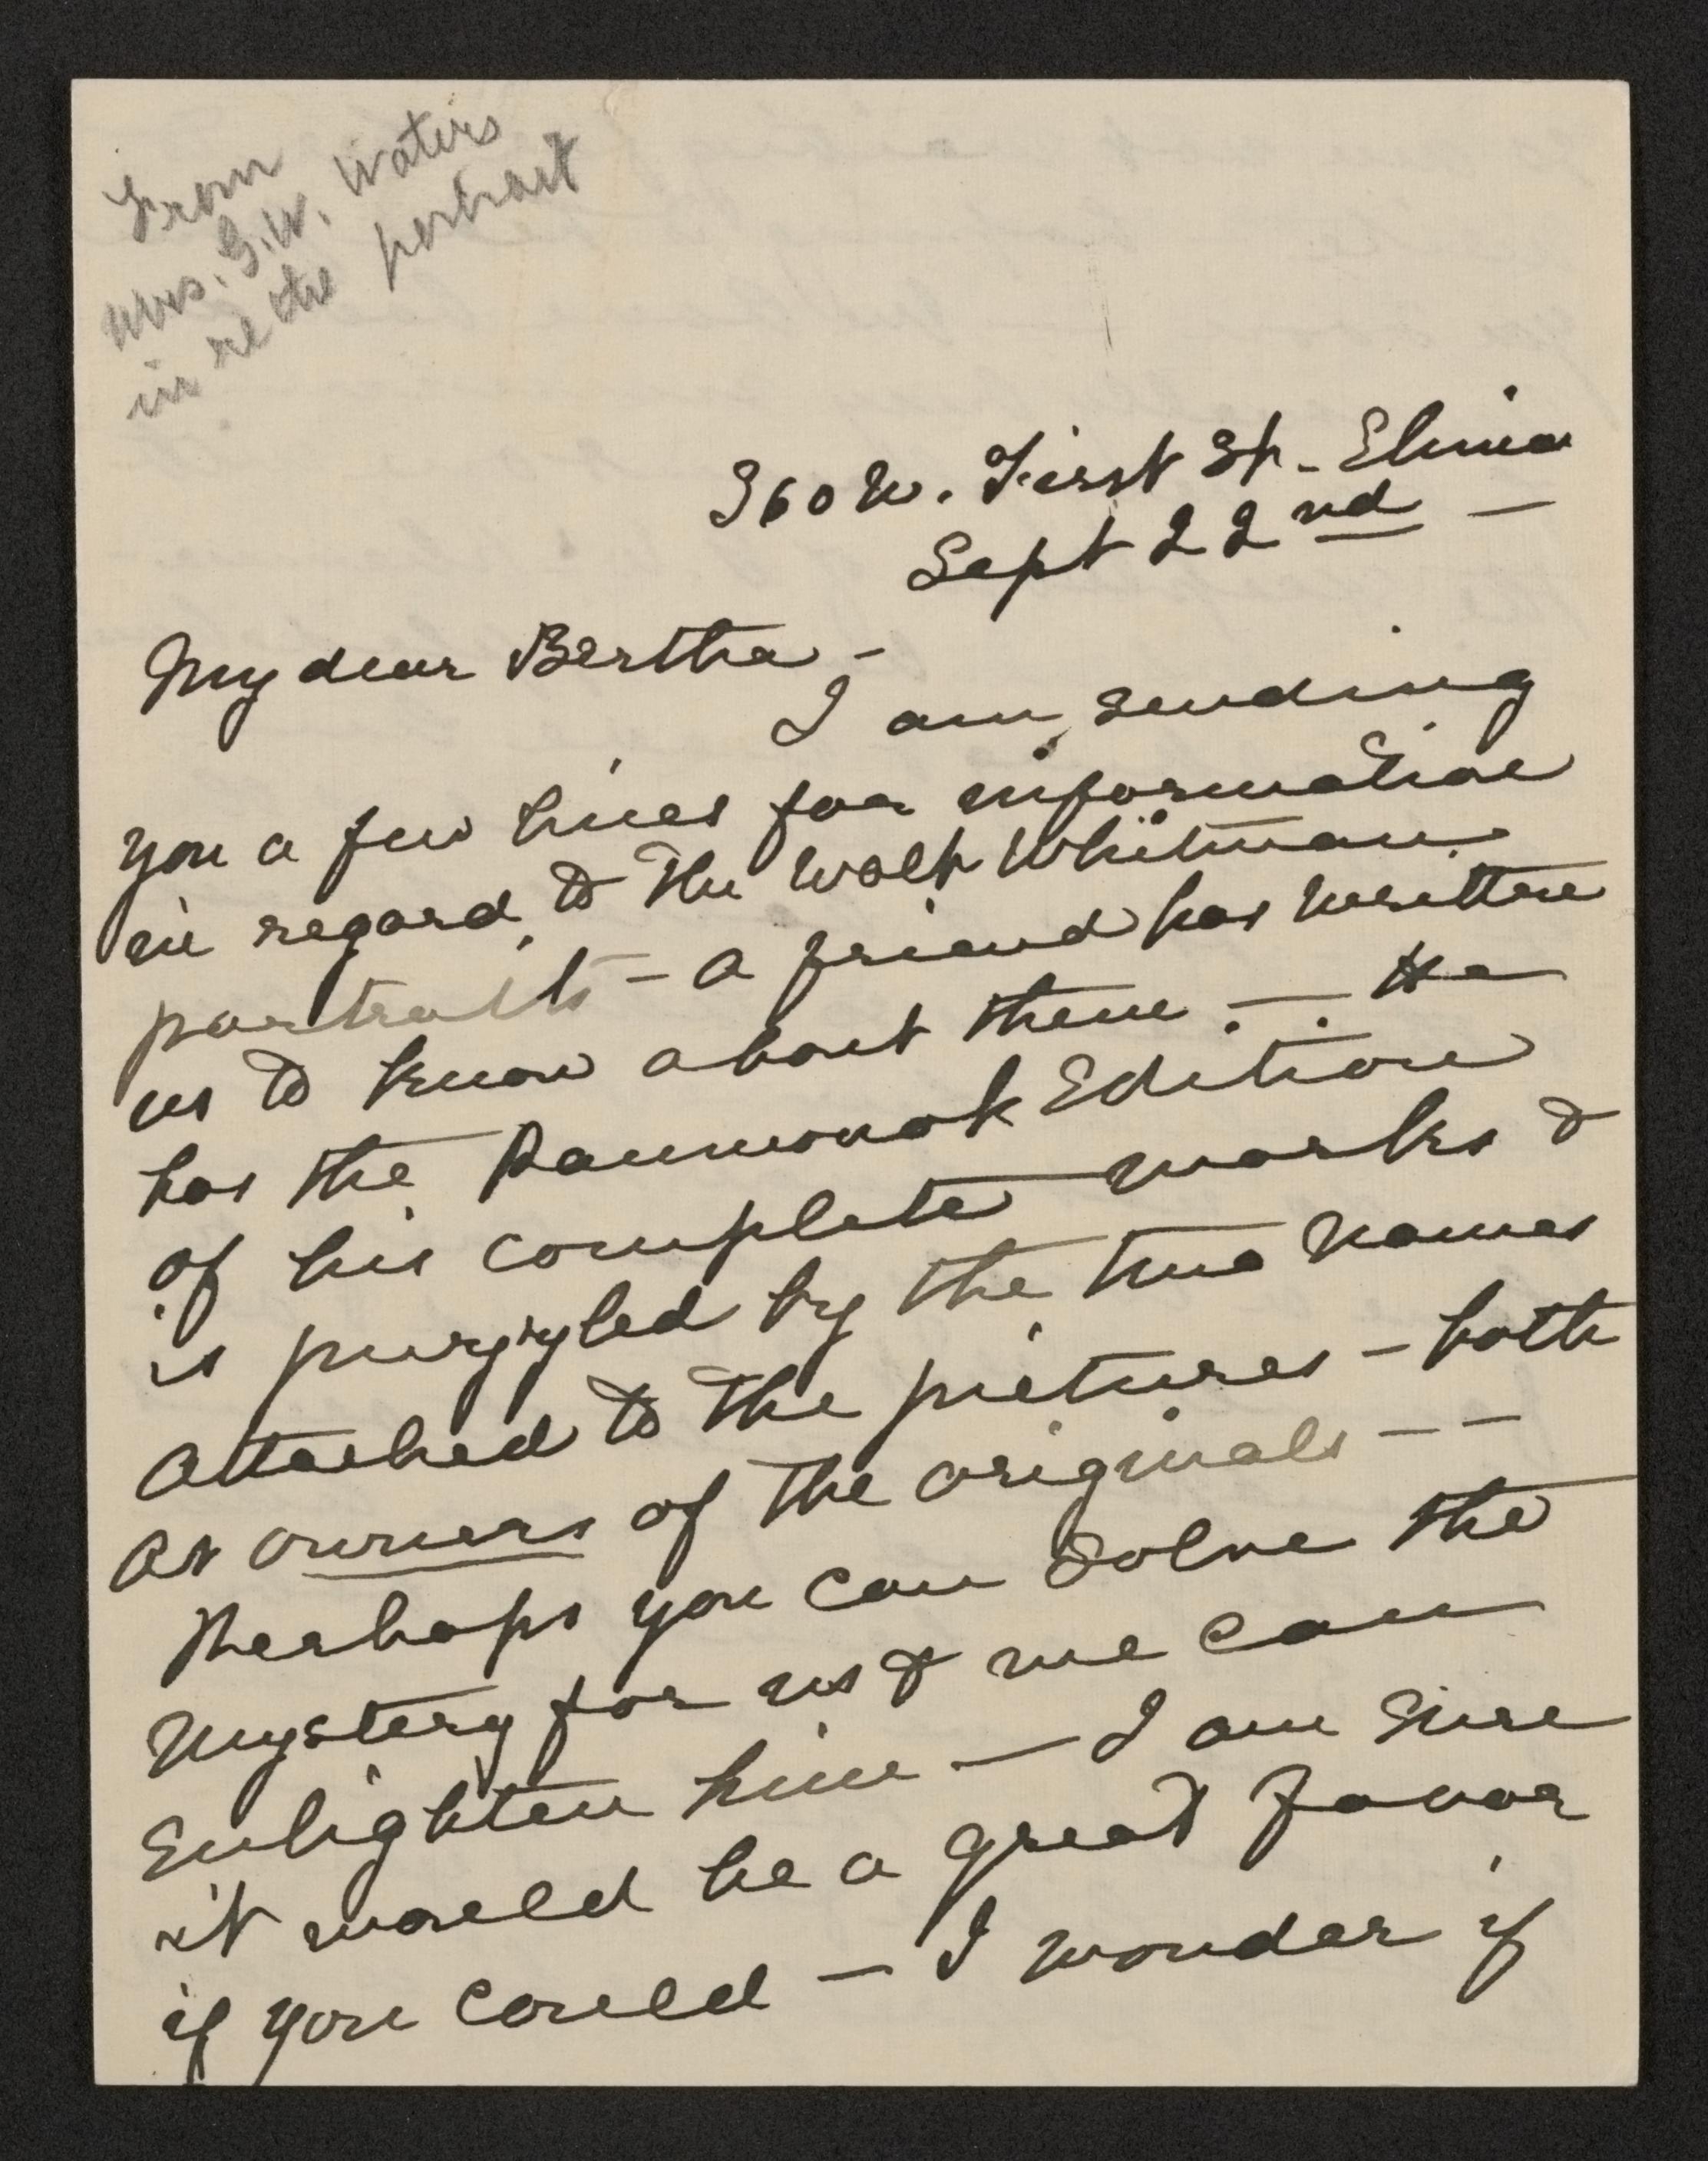 From
Mrs. G.W. Waters
in re the portrait
360 W. First St - Elmira
Sept 22nd -
My dear Bertha -
I am sending
you a few lines for information
in regard to the Walt Whitman
portraits - A friend has written
us to know about them - - He
has the Paumonok Edition
of his complete works &
is puzzled by the two names
attached to the pictures - both
as owners of the originals - -
Perhaps you can solve the
mystery for us & we can
enlighten him - I am sure
it would be a great favor
if you could - I wonder if